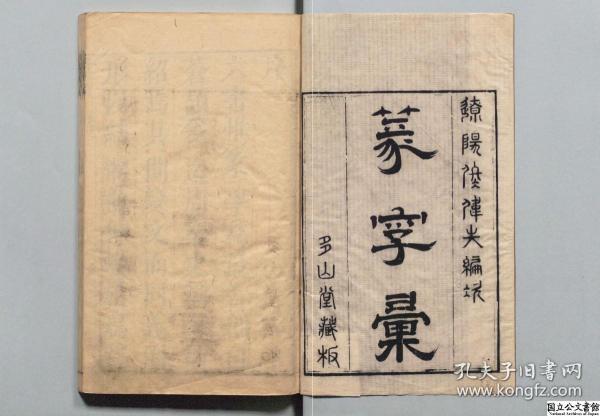 遼陽佟偉夫編次
篆字彙
多山堂藏板
孔夫子旧书网
www.kongfz.com
国立公文書館
National Archives of Japan